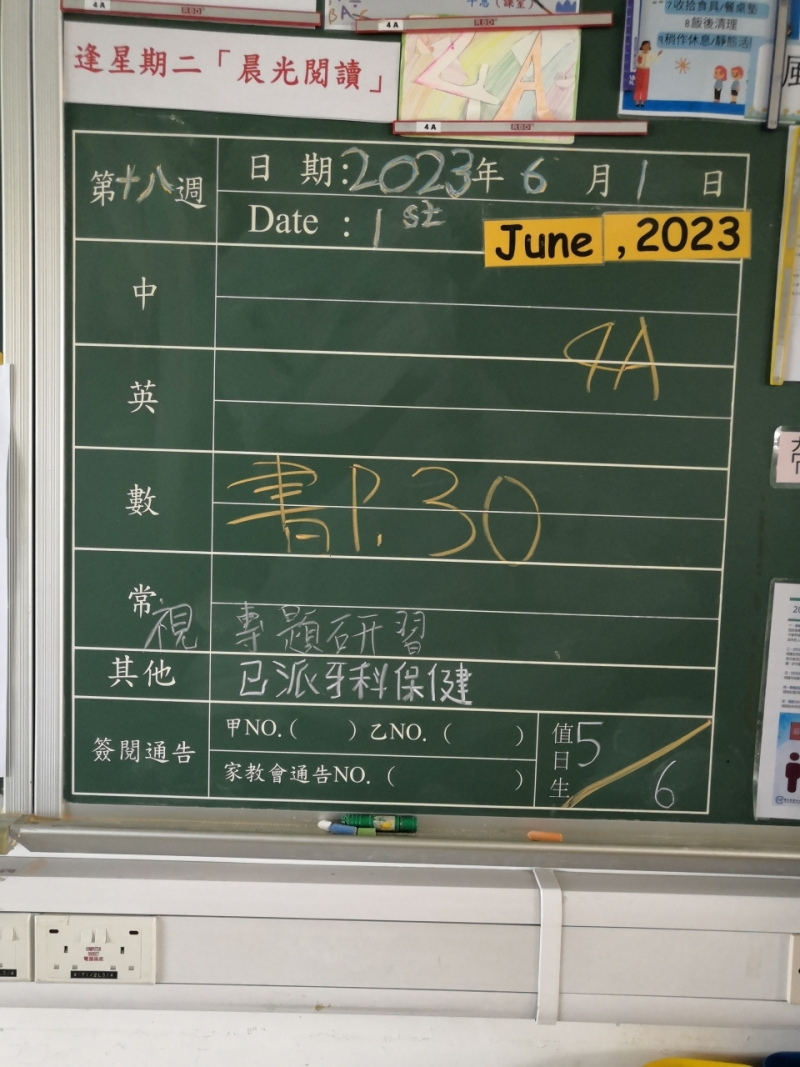 4A
RBD
4A
RBD
7收拾食具/餐桌墊
8飯後清理
9稍作休息/靜態活
逢星期二「晨光閱讀」
4A
RBD
第十八週
日 期:2023年6月1日
Date : 1st June , 2023
中
4A
英
數 書P.30
常
視 專題研習
其他 已派牙科保健
簽閱通告
甲NO.( ) 乙NO.( )
家教會通告NO.( )
值日生 5/6